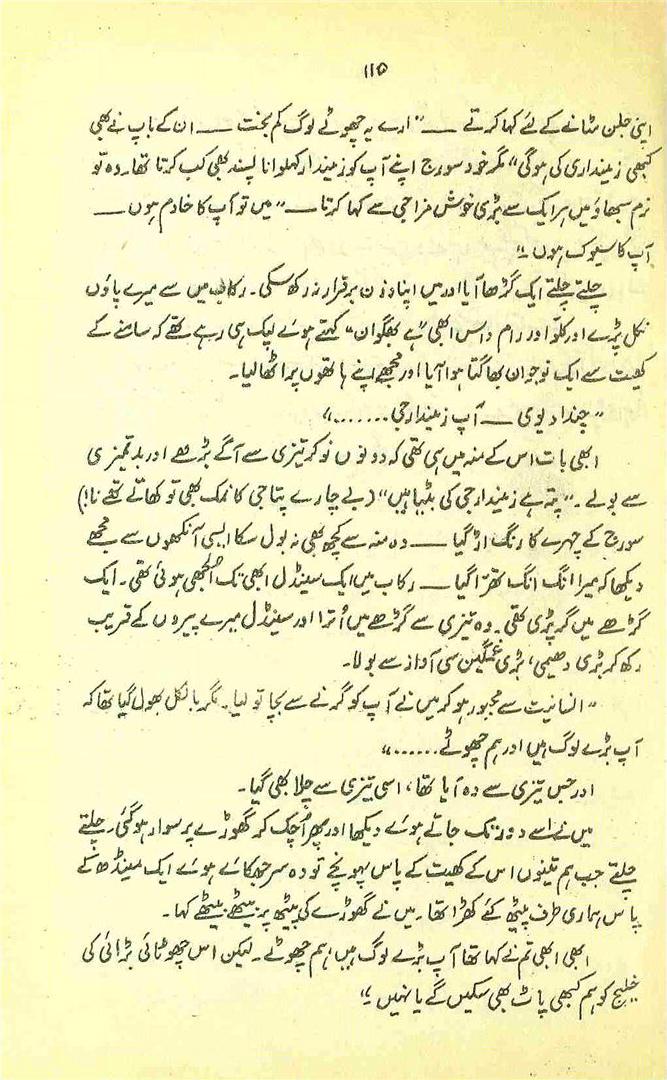 ۱۱۵
اپنی جلن مٹانے کے لئے کہا کرتے — "ارے یہ چھوٹے لوگ کم بخت — ان کے باپ نے بھی
کبھی زمینداری کی ہوگی" مگر خود سورج اپنے آپ کو زمیندار کہلوانا پسند بھی کب کرتا تھا۔ وہ تو
نرم سبھاؤ میں ہر ایک سے بڑی خوش مزاجی سے کہا کرتا — "میں تو آپ کا خادم ہوں —
آپ کا سیوک ہوں۔"
چلتے چلتے ایک گڑھا آیا اور میں اپنا وزن برقرار نہ رکھ سکی۔ رکاب میں سے میرے پاؤں
نکل پڑے اور کلّو اور رام داس ابھی "ہے بھگوان" کہتے ہوئے لپک ہی رہے تھے کہ سامنے کے
کھیت سے ایک نوجوان بھاگتا ہوا آیا اور مجھے اپنے ہاتھوں پر اٹھا لیا۔
"چندا دیوی — آپ زمیندار جی......."
ابھی بات اس کے منہ میں ہی تھی کہ دونوں نوکر تیزی سے آگے بڑھے اور بدتمیزی
سے بولے۔ "پتہ ہے زمیندار جی کی بٹیا ہیں" (بے چارے پتا جی کا نمک بھی تو کھاتے تھے نا!)
سورج کے چہرے کا رنگ اڑ گیا — وہ منہ سے کچھ بھی نہ بول سکا ایسی آنکھوں سے مجھے
دیکھا کہ میرا انگ انگ تھرّا گیا — رکاب میں ایک سینڈل ابھی تک اُلجھی ہوئی تھی۔ ایک
گڑھے میں گر پڑی تھی۔ وہ تیزی سے گڑھے میں اُترا اور سینڈل میرے پیروں کے قریب
رکھ کر بڑی دھیمی، بڑی غمگین سی آواز سے بولا۔
"انسانیت سے مجبور ہو کر میں نے آپ کو گرنے سے بچا تو لیا۔ مگر بالکل بھول گیا تھا کہ
آپ بڑے لوگ ہیں اور ہم چھوٹے......"
اور جس تیزی سے وہ آیا تھا، اسی تیزی سے چلا بھی گیا۔
میں نے اسے دور تک جاتے ہوئے دیکھا اور پھر اُچک کر گھوڑے پر سوار ہو گئی۔ چلتے
چلتے جب ہم تینوں اس کے کھیت کے پاس پہونچے تو وہ سر جھکائے ہوئے ایک مینڈھ کے
پاس ہماری طرف پیٹھ کئے کھڑا تھا۔ میں نے گھوڑے کی پیٹھ پر بیٹھے بیٹھے کہا۔
ابھی ابھی تم نے کہا تھا آپ بڑے لوگ ہیں، ہم چھوٹے۔ لیکن اس چھوٹائی بڑائی کی
خلیج کو ہم کبھی پاٹ بھی سکیں گے یا نہیں؟"